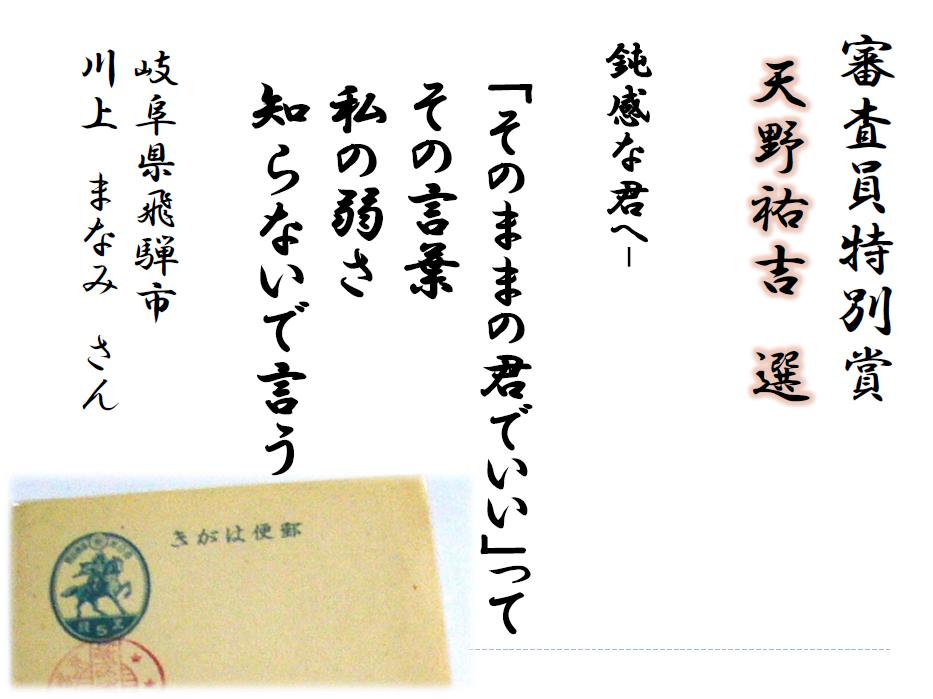 審査員特別賞
天野祐吉　選
鈍感な君へ―
「そのままの君でいい」って
その言葉
私の弱さ
知らないで言う
岐阜県飛騨市
川上　まなみ　さん
きがは便郵